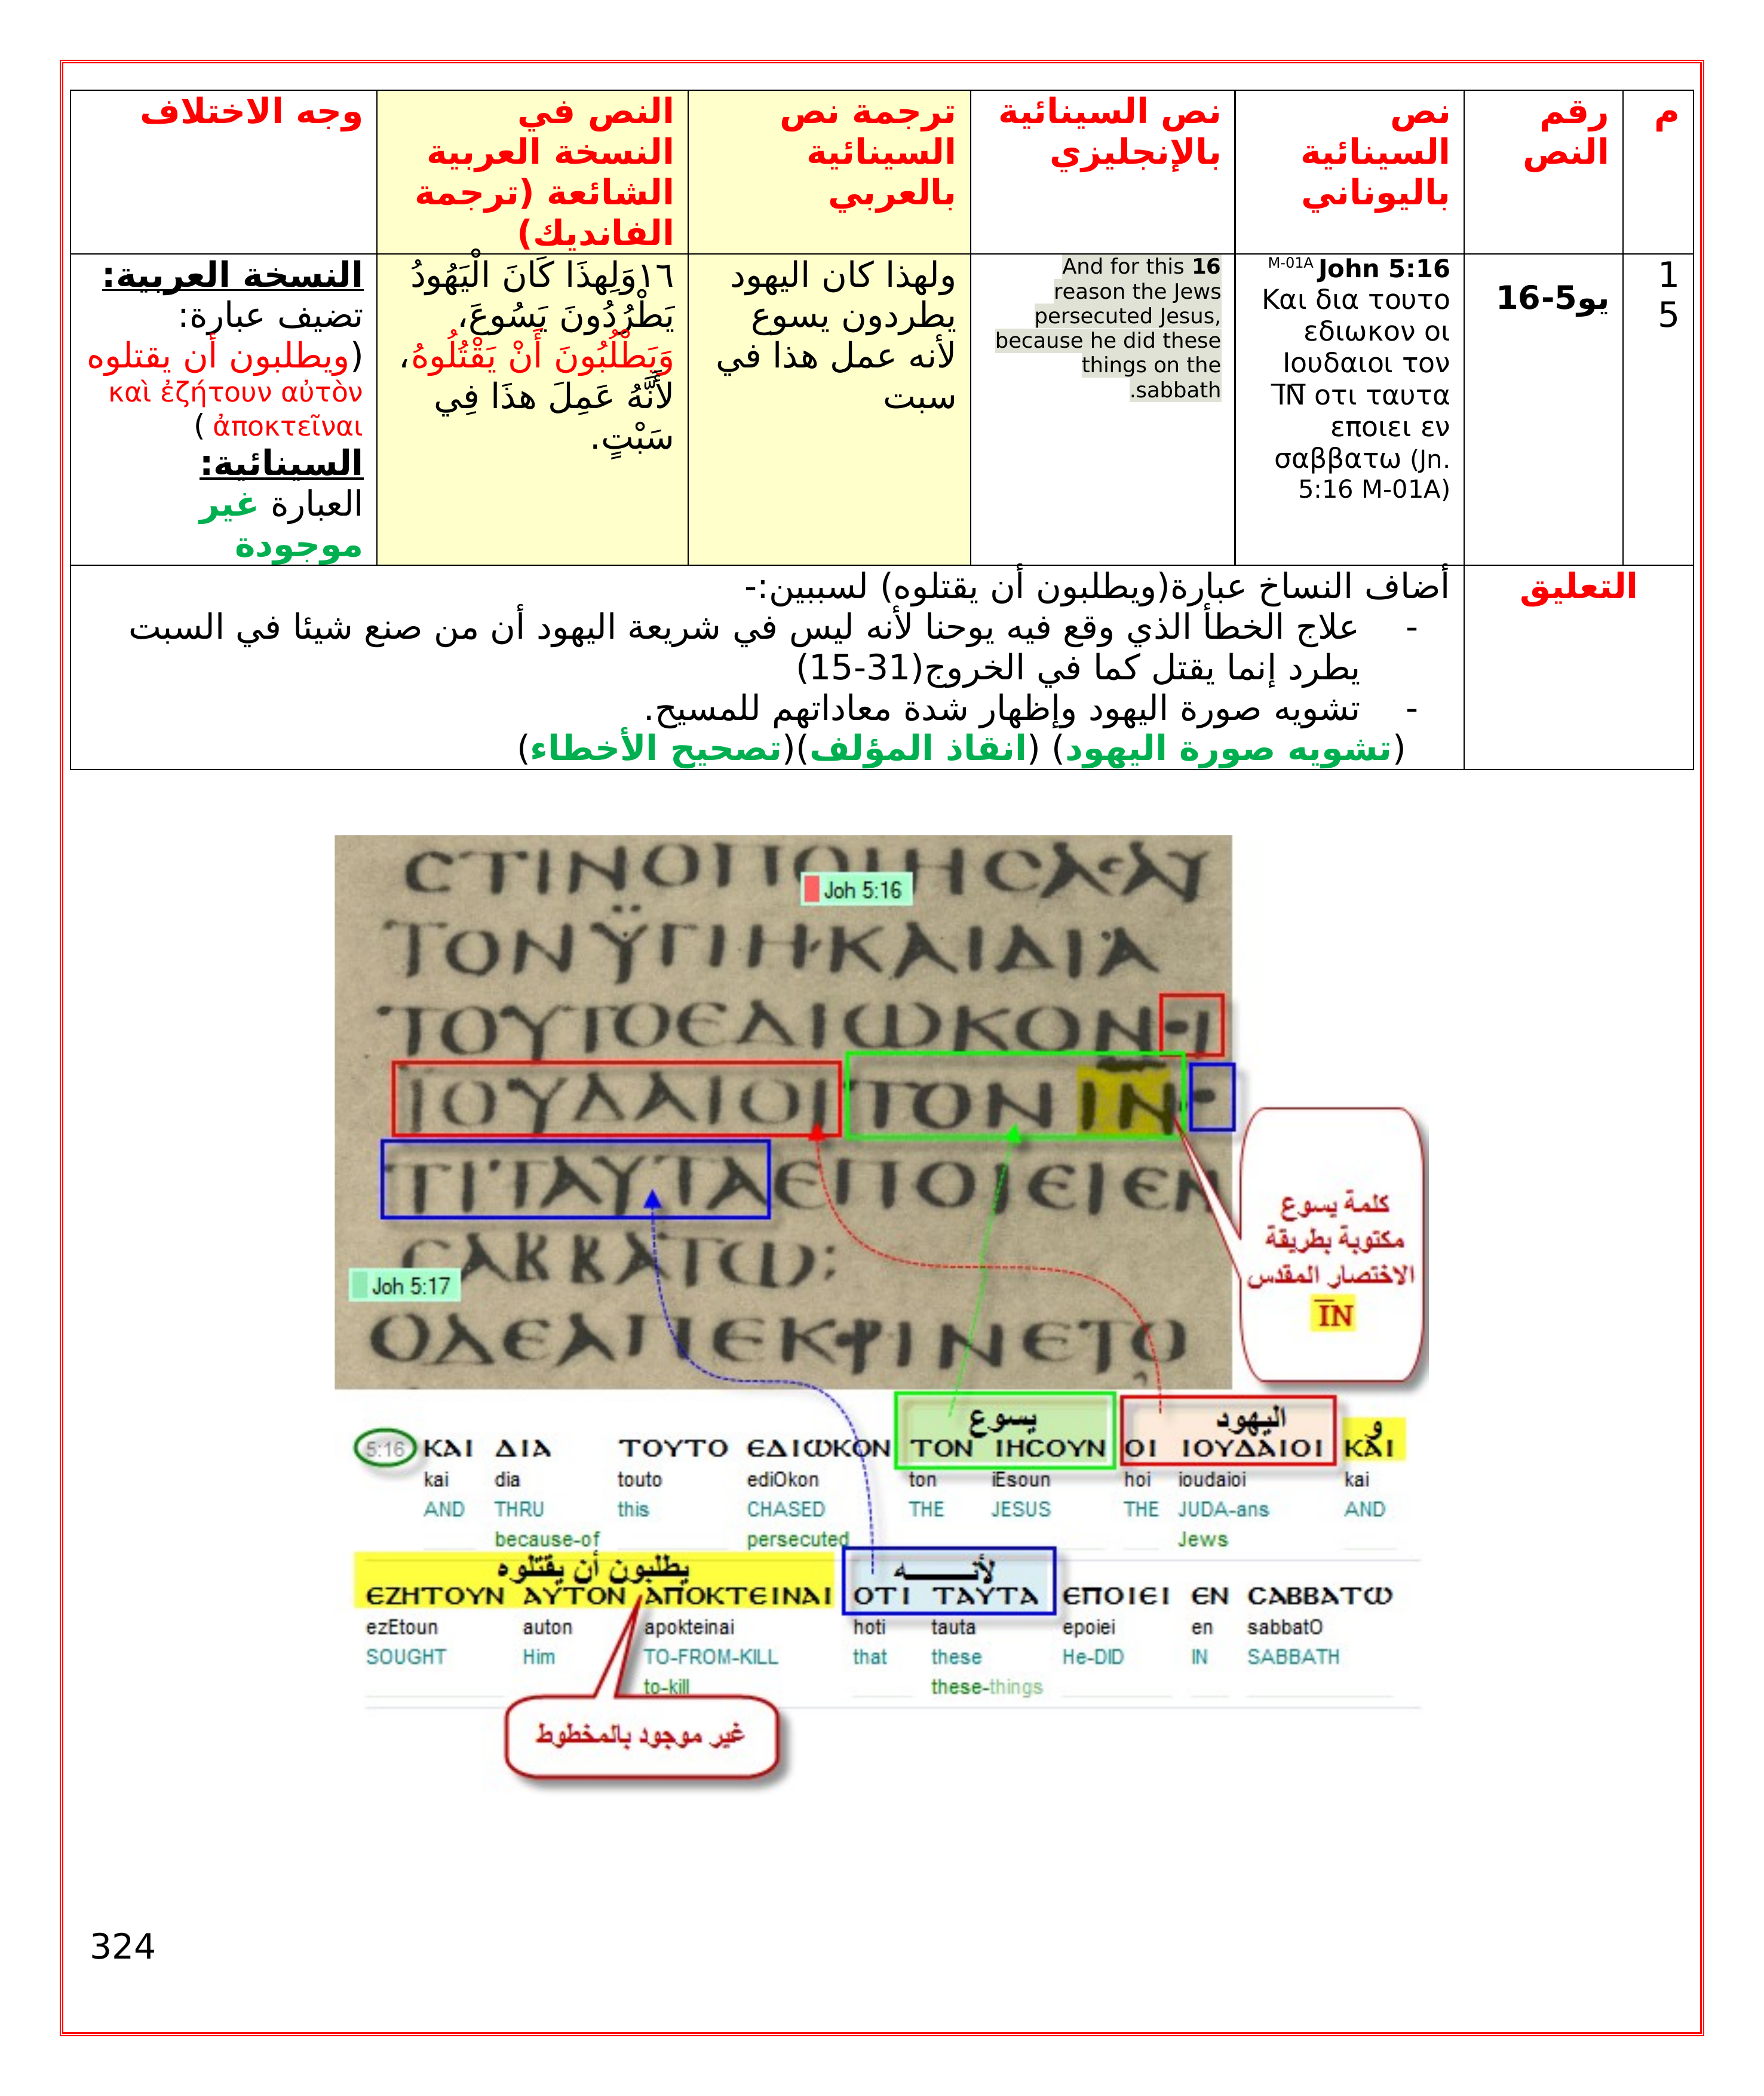 م
رقم
النص
نص
السينائية
باليوناني
نص السينائية
بالإنجليزي
ترجمة نص
السينائية
بالعربي
النص في
النسخة العربية
الشائعة (ترجمة
الفانديك)
وجه الاختلاف
1
5
يو5-16
M-01A John 5:16
Και δια τουτο
εδιωκον οι
Ιουδαιοι τον
ΙΝ οτι ταυτα
εποιει εν
σαββατω (Jn.
5:16 M-01A)
And for this 16
reason the Jews
persecuted Jesus,
because he did these
things on the
sabbath.
ولهذا كان اليهود
يطردون يسوع
لأنه عمل هذا في
سبت
١٦وَلِهذَا كَانَ الْيَهُودُ
يَطْرُدُونَ يَسُوعَ،
وَيَطْلُبُونَ أَنْ يَقْتُلُوهُ،
لأَنَّهُ عَمِلَ هذَا فِي
سَبْتٍ.
النسخة العربية:
تضيف عبارة:
(ويطلبون أن يقتلوه
καὶ ἐζήτουν αὐτὸν
ἀποκτεῖναι )
السينائية:
العبارة غير
موجودة
التعليق
أضاف النساخ عبارة(ويطلبون أن يقتلوه) لسببين:-
- علاج الخطأ الذي وقع فيه يوحنا لأنه ليس في شريعة اليهود أن من صنع شيئا في السبت
يطرد إنما يقتل كما في الخروج(31-15)
- تشويه صورة اليهود وإظهار شدة معاداتهم للمسيح.
(تشويه صورة اليهود) (انقاذ المؤلف)(تصحيح الأخطاء)
ϹΤΙΝΟΠΟΙΗϹΑϹΑΥ
Joh 5:16
ΤΟΝΫΓΙΗ·ΚΑΙΔΙΑ
ΤΟΥΤΟΕΔΙΩΚΟΝ·Ι
ΙΟΥΔΑΙΟΙΤΟΝΙΝ·
ΤΙΤΑΥΤΑΕΠΟΙΕΙΕΝ
ϹΑΒΒΑΤΩ:
Joh 5:17
ΟΔΕΑΠΕΚΡΙΝΕΤΟ
كلمة يسوع
مكتوبة بطريقة
الاختصار المقدس
IN
يسوع اليهود و
5:16 ΚΑΙ ΔΙΑ ΤΟΥΤΟ ΕΔΙΩΚΟΝ ΤΟΝ ΙΗϹΟΥΝ ΟΙ ΙΟΥΔΑΙΟΙ ΚΑΙ
kai dia touto ediOkon ton iEsoun hoi ioudaioi kai
AND THRU this CHASED THE JESUS THE JUDA-ans AND
because-of persecuted Jews
يطلبون أن يقتلوه لأنــــه
ΕΖΗΤΟΥΝ ΑΥΤΟΝ ΑΠΟΚΤΕΙΝΑΙ ΟΤΙ ΤΑΥΤΑ ΕΠΟΙΕΙ ΕΝ ϹΑΒΒΑΤΩ
ezEtoun auton apokteinai hoti tauta epoiei en sabbatO
SOUGHT Him TO-FROM-KILL that these He-DID IN SABBATH
to-kill these-things
غير موجود بالمخطوط
324